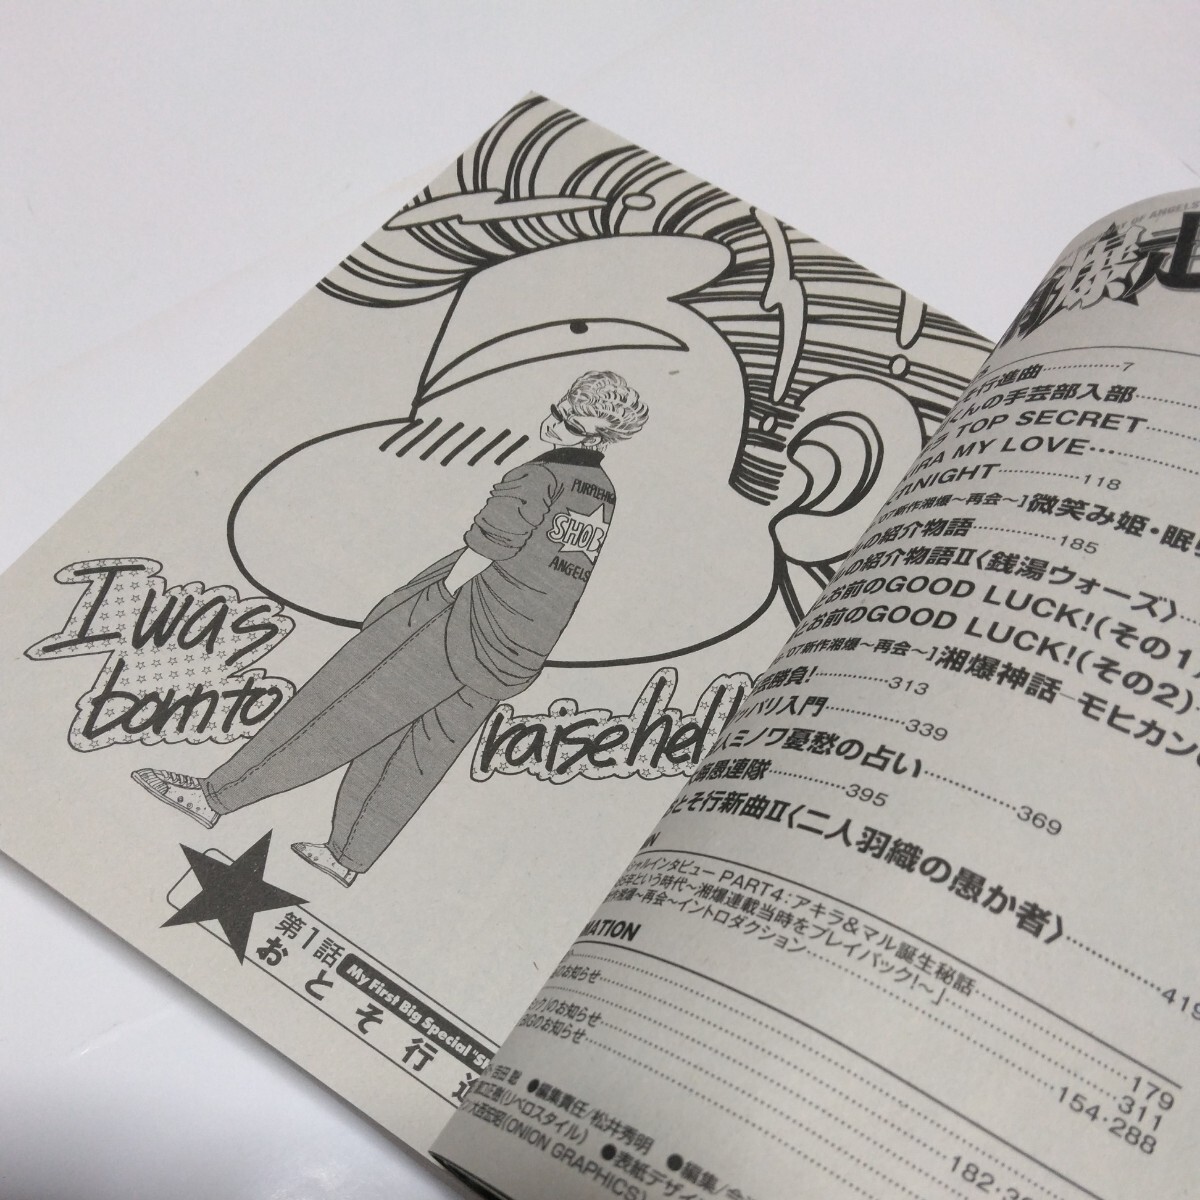 I was
born to
raise hell
PURPLEHIGH
SHOB
ANGELS
第1話
My First Big Special
おとそ行進
OF ANGELS
爆走
そ行進曲……………7
の手芸部入部
TOP SECRET
MY LOVE…
NIGHT……………118
'07新作湘爆〜再会〜]微笑み姫・眠り
の紹介物語……………185
の紹介物語Ⅱ〈銭湯ウォーズ〉
お前のGOOD LUCK!(その1)
とお前のGOOD LUCK!(その2)
'07新作湘爆〜再会〜]湘爆神話 モヒカン
勝負!……………313
バリ入門……………339
ミノワ憂愁の占い……………369
愚連隊……………395
とそ行新曲Ⅱ〈二人羽織の愚か者〉……………419
ャルインタビュー PART4：アキラ&マル誕生秘話……………179
年という時代〜湘爆連載当時をプレイバック!〜」……………311
〜再会〜イントロダクション……………154・288
MATION
のお知らせ
のお知らせ
のお知らせ
182
吉田聡 ●編集責任/松井秀明 ●編集/
(リベロスタイル) ●表紙デザイ
(ONION GRAPHICS)